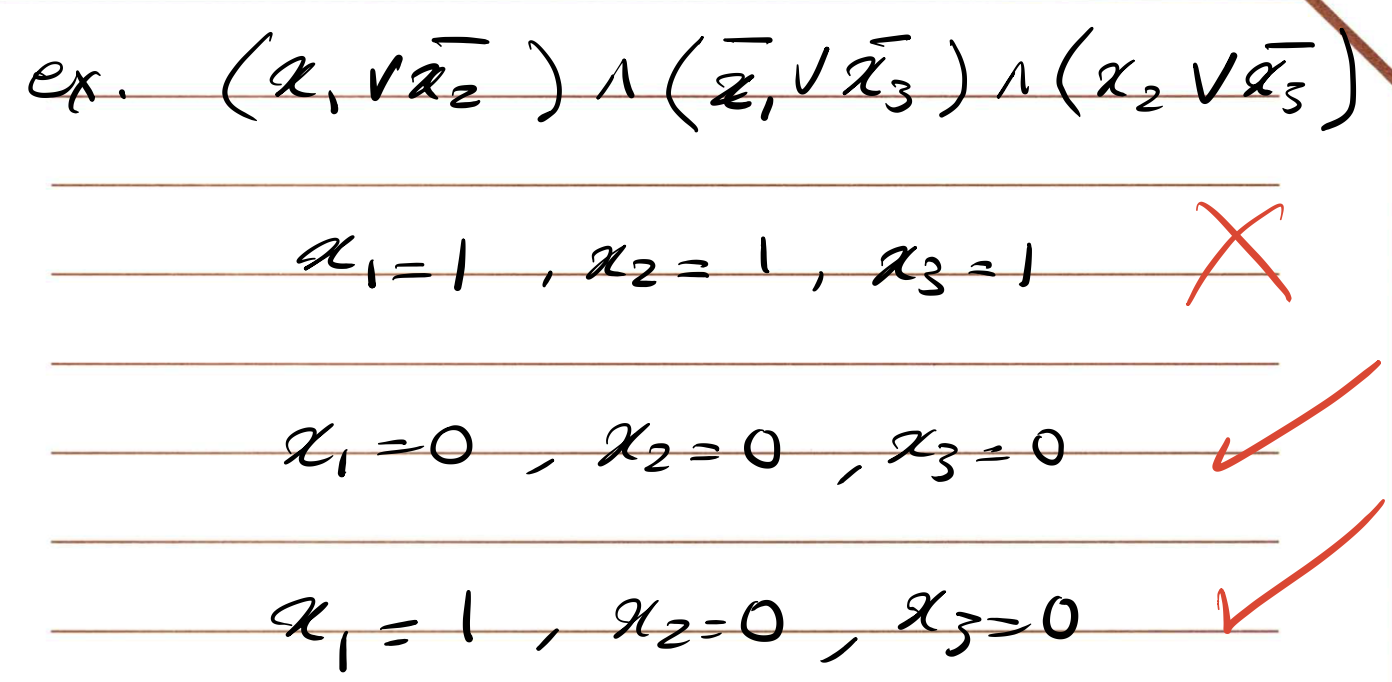 ex. (x₁ ∨ x̅₂) ∧ (x̅₁ ∨ x̅₃) ∧ (x₂ ∨ x̅₃)
x₁ = 1 , x₂ = 1 , x₃ = 1
x₁ = 0 , x₂ = 0 , x₃ = 0
x₁ = 1 , x₂ = 0 , x₃ = 0